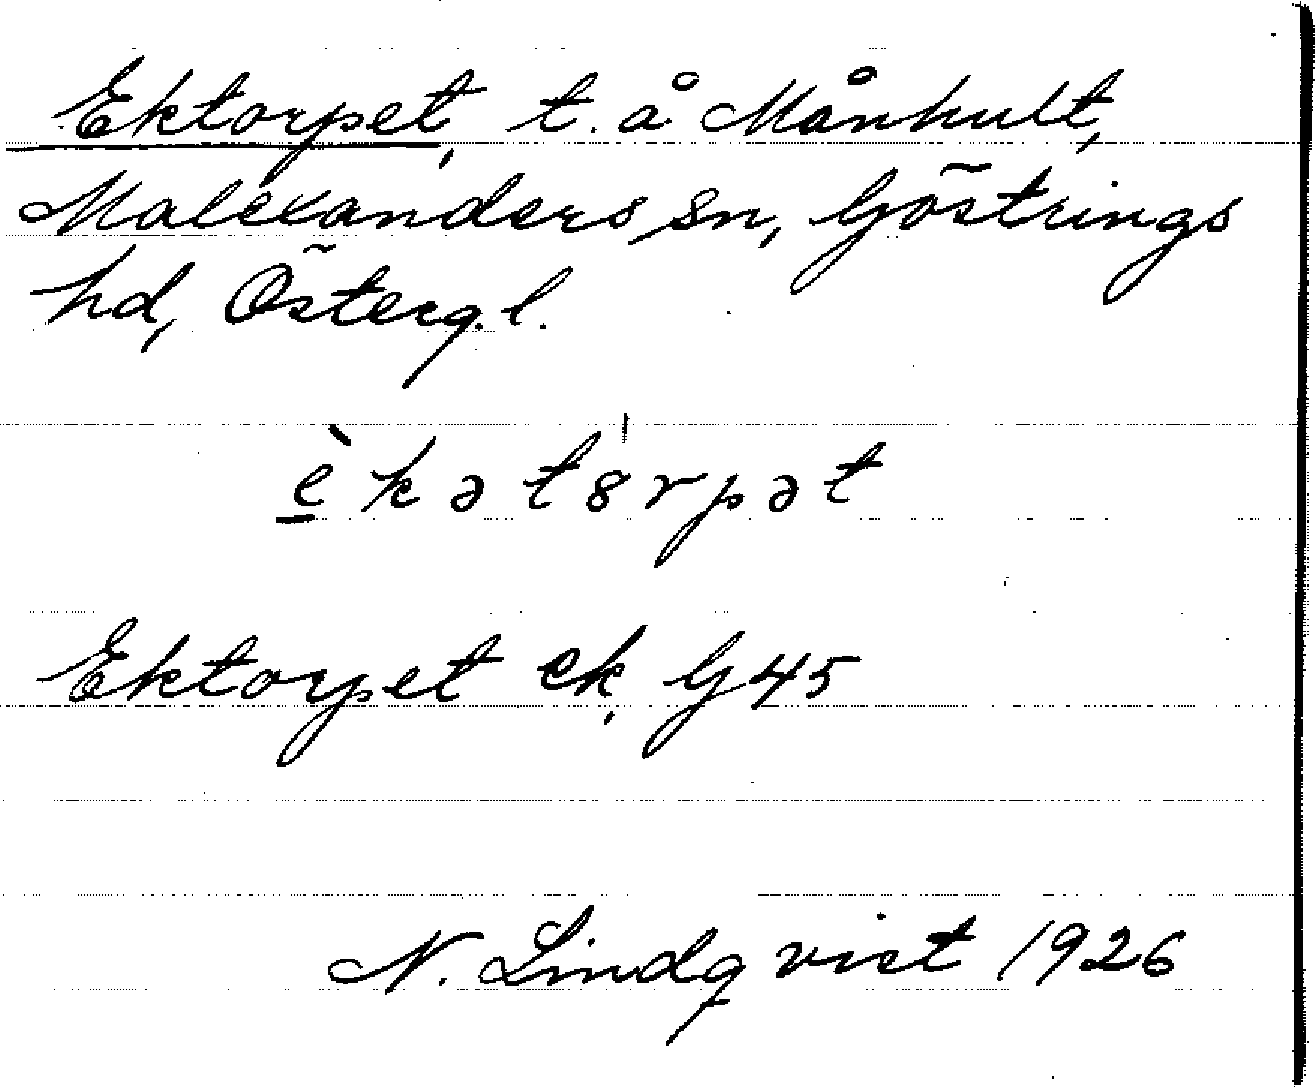 Ektorpet, t. å Månhult,
Malexanders sn, Göstrings
hd, Österg. l.
è̱kətȣrpət
Ektorpet ek, G 45
N. Lindqvist 1926